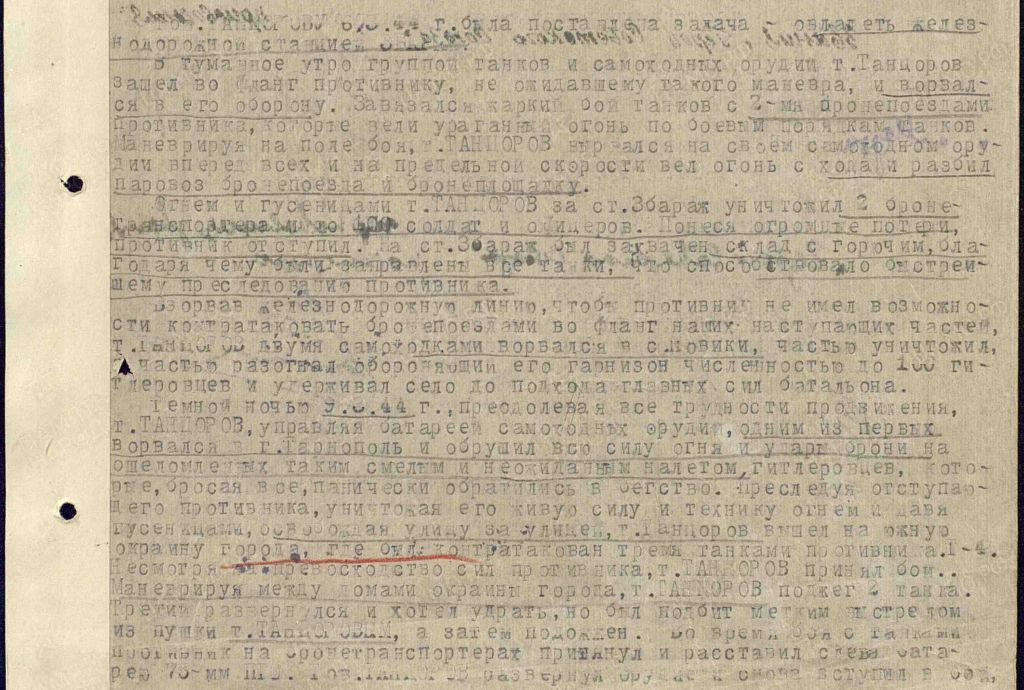 т. ТАНЦОРОВУ 6.3.44 г. была поставлена задача - овладеть желез-
нодорожной станцией
В туманное утро группой танков и самоходных орудий т.Танцоров
зашел во фланг противнику, не ожидавшему такого маневра, и ворвал-
ся в его оборону. Завязался жаркий бой танков с 2-мя бронепоездами
противника, которые вели ураганный огонь по боевым порядкам танков.
Маневрируя на поле боя, т.ТАНЦОРОВ вырвался на своем самоходном ору-
дии вперед всех и на предельной скорости вел огонь с хода и разбил
паровоз бронепоезда и бронеплощадку.
Огнем и гусеницами т.ТАНЦОРОВ за ст.Збараж уничтожил 2 броне-
транспортера и до солдат и офицеров. Понеся огромные потери,
противник отступил. На ст.Збараж был захвачен склад с горючим, бла-
годаря чему были заправлены все танки, что способствовало быстрей-
шему преследованию противника.
Взорвав железнодорожную линию, чтобы противник не имел возможно-
сти контратаковать бронепоездами во фланг наших наступающих частей,
т.ТАНЦОРОВ двумя самоходками ворвался в с.Новики, частью уничтожил,
частью разогнал оборонявший его гарнизон численностью до 100 ги-
тлеровцев и удерживал село до подхода главных сил батальона.
Темной ночью 9.3.44 г., преодолевая все трудности продвижения,
т.ТАНЦОРОВ, управляя батареей самоходных орудий, одним из первых
ворвался в г.Тарнополь и обрушил всю силу огня и удары брони на
ошеломленных таким смелым и неожиданным налетом, гитлеровцев, кото-
рые, бросая все, панически обратились в бегство. Преследуя отступаю-
щего противника, уничтожая его живую силу и технику огнем и давя
гусеницами, освобождая улицу за улицей, т.Танцоров вышел на южную
окраину города, где был контратакован тремя танками противника Т-4.
Несмотря на превосходство сил противника, т.ТАНЦОРОВ принял бой..
Маневрируя между домами окраины города, т.ТАНЦОРОВ поджег 2 танка.
Третий развернулся и хотел удрать, но был подбит метким выстрелом
из пушки т.ТАНЦОРОВЫМ, а затем подожжен. Во время боя с танками
противник на бронетранспортерах притянул и расставил слева бата-
рею 75-мм ПТО. Тов.ТАНЦОРОВ развернул орудие и снова вступил в бой,